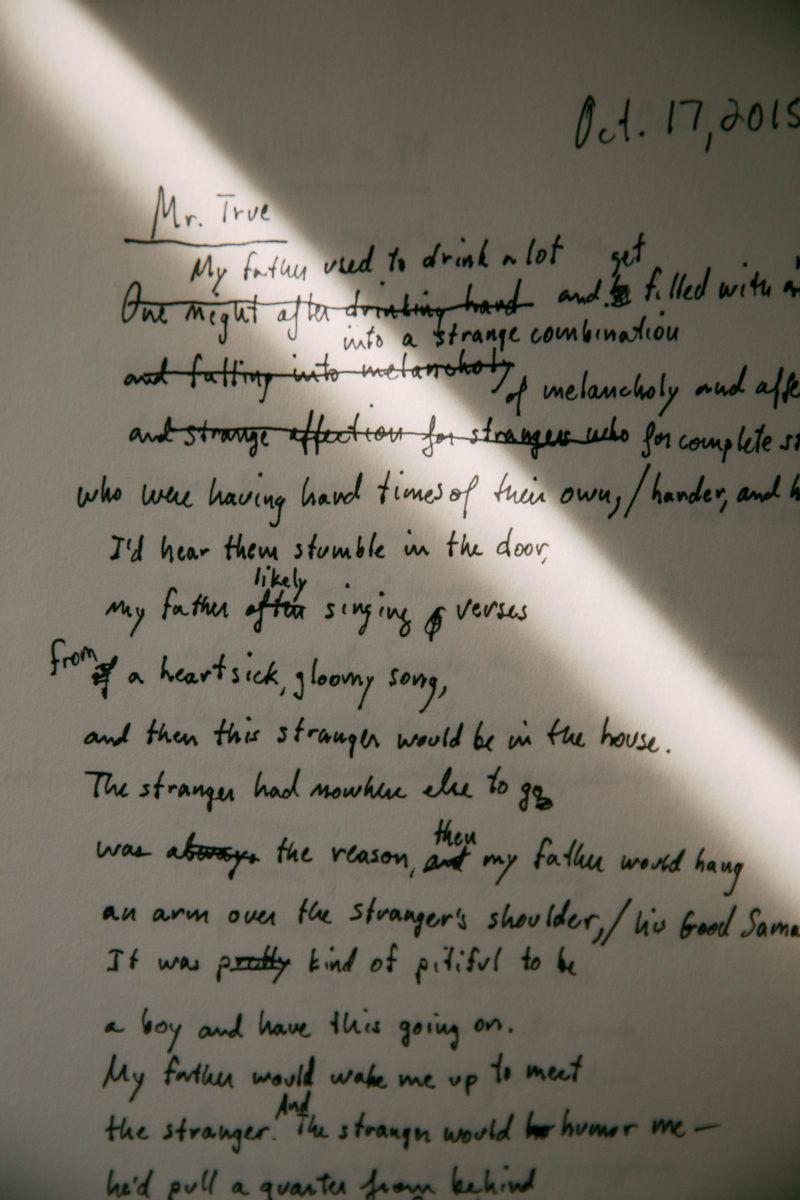 Oct. 17, 2015
Mr. True
My father used to drink a lot get
One night after drinking hard and be filled with
into a strange combination
and falling into melancholy
of melancholy and affe
and strange affection for strangers who for complete st
who were having hard times of their own, / harder, and h
I'd hear them stumble in the door,
likely
my father often singing verses
from
of a heartsick, gloomy song,
and then this stranger would be in the house.
The stranger had nowhere else to go
then
was always the reason, and my father would hang
an arm over the stranger's shoulder, / his Good Sama
It was pretty kind of pitiful to be
a boy and have this going on.
My father would wake me up to meet
And
the stranger. The stranger would humor me —
he'd pull a quarter from behind